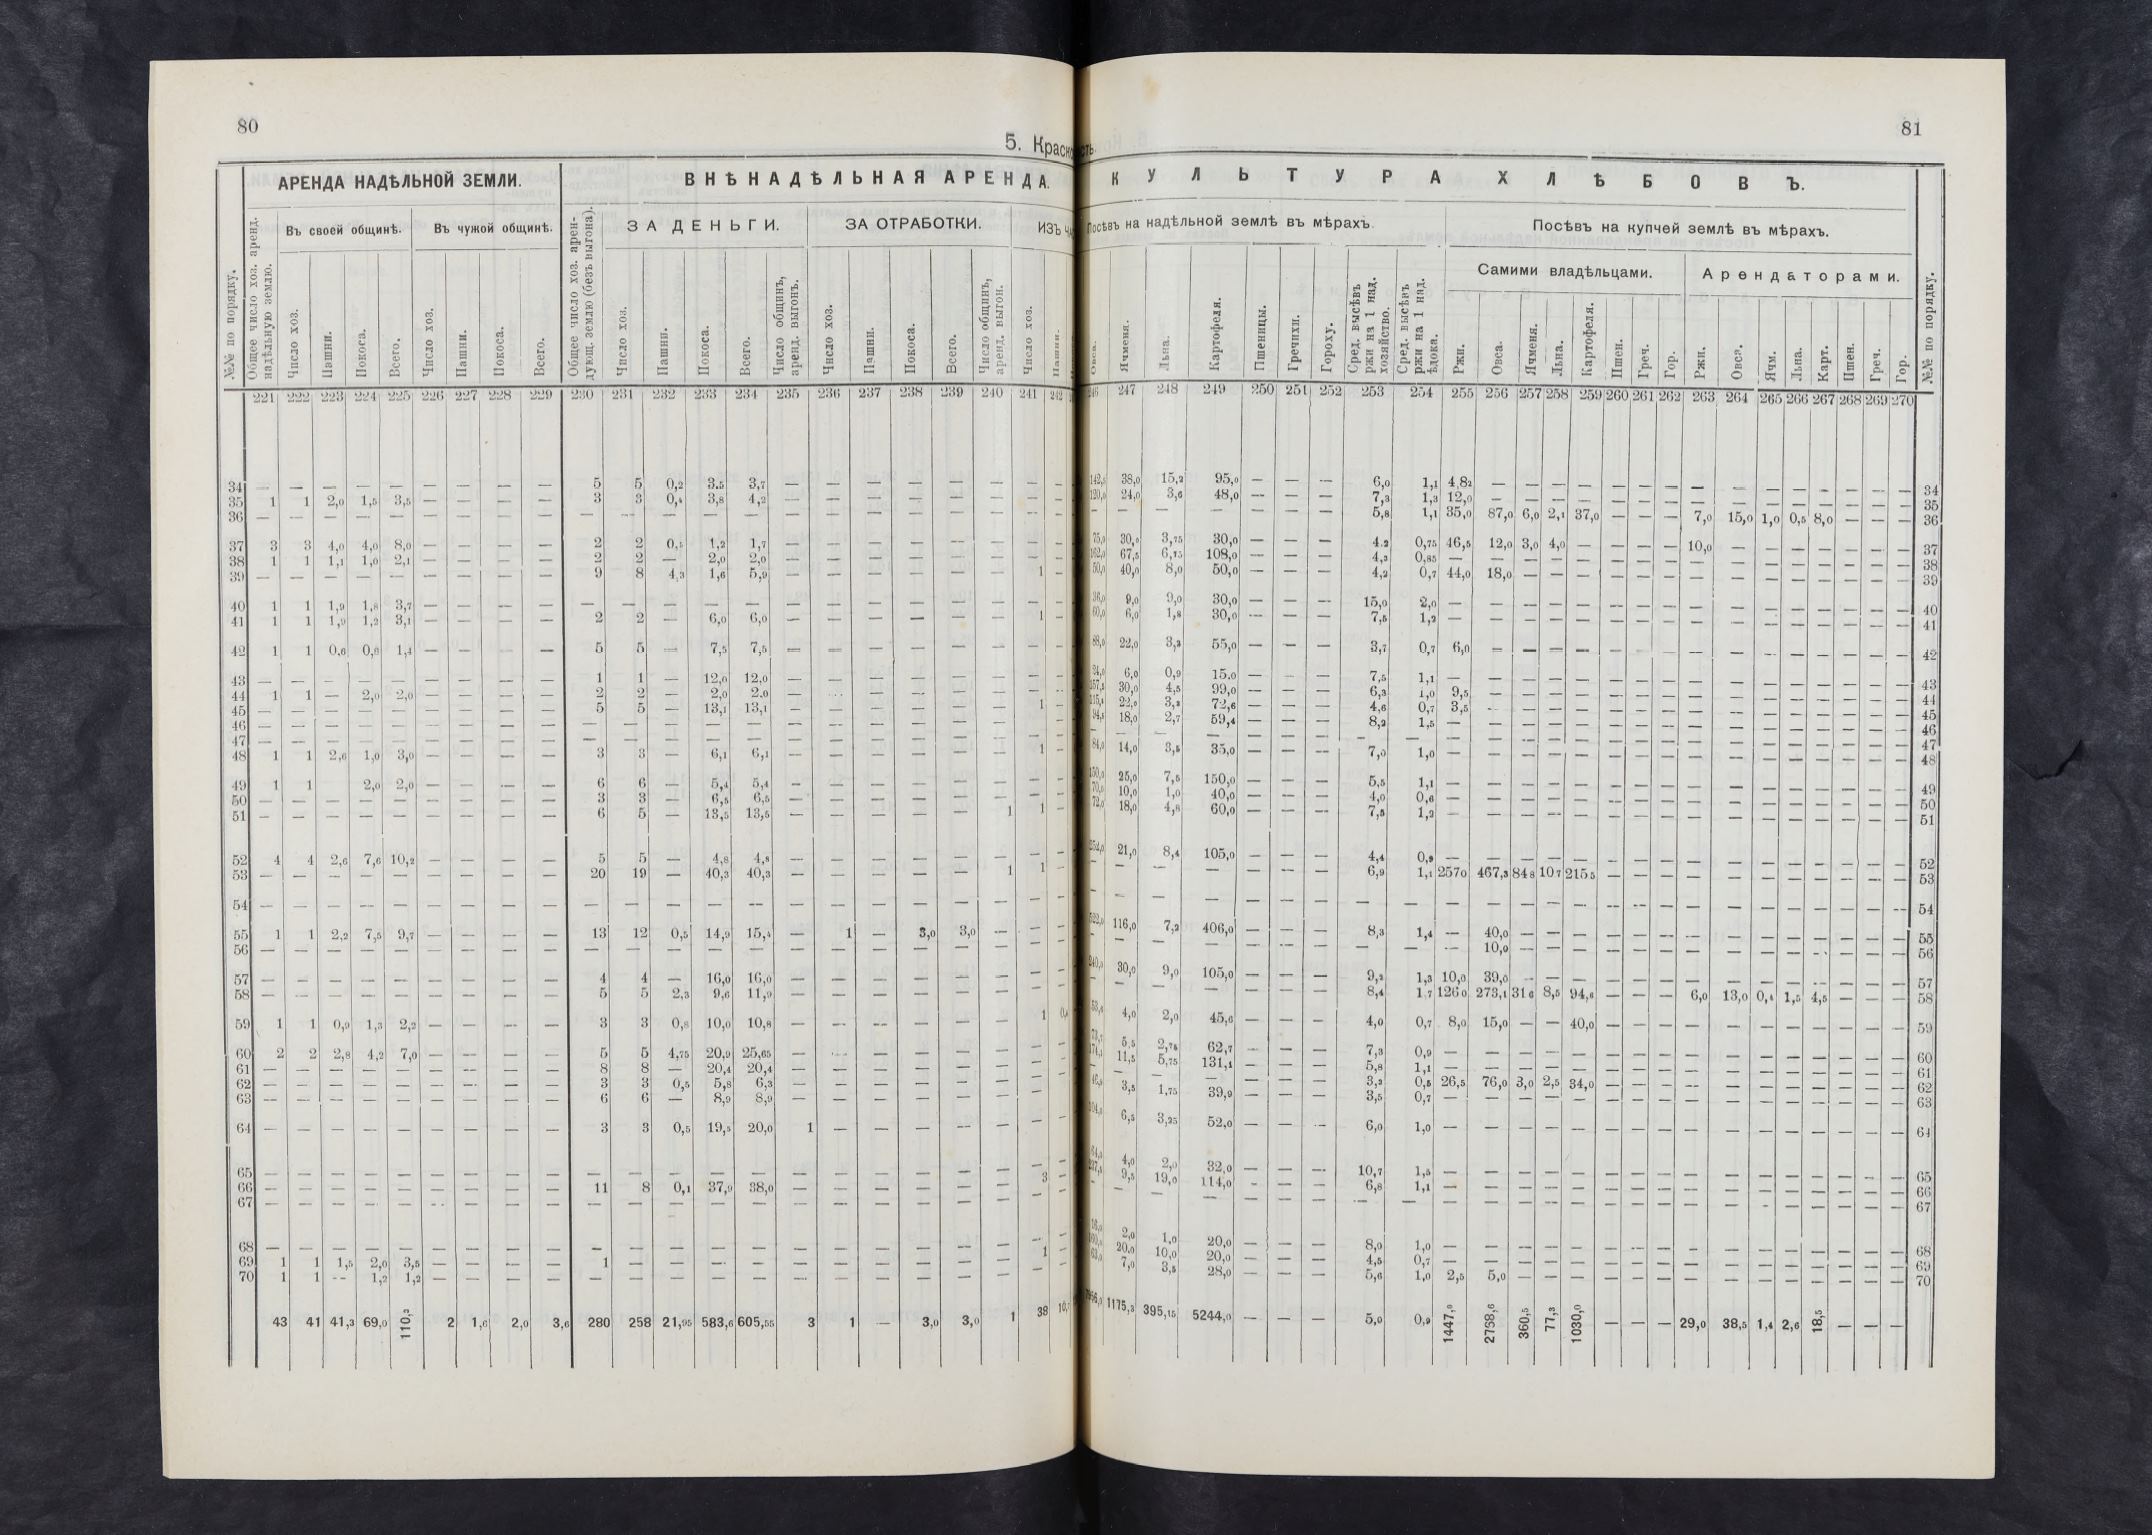 80
5. Красно
АРЕНДА НАДѢЛЬНОЙ ЗЕМЛИ.
ВНѢНАДѢЛЬНАЯ АРЕНДА.
Въ своей общинѣ. Въ чужой общинѣ. ЗА ДЕНЬГИ. ЗА ОТРАБОТКИ. ИЗЪ
№№ по порядку. Общее число хоз. аренд. надѣльную землю. Число хоз. Пашни. Покоса. Всего. Число хоз. Пашни. Покоса. Всего. Общее число хоз. арендующ. землю (безъ выгона). Число хоз. Пашни. Покоса. Всего. Число общинъ, аренд. выгонъ. Число хоз. Пашни. Покоса. Всего. Число общинъ, аренд. выгон. Число хоз. Пашни.
221 222 223 224 225 226 227 228 229 230 231 232 233 234 235 236 237 238 239 240 241 242
34 — — — — — — — — — 5 5 0,2 3,5 3,7 — — — — — — — —
35 1 1 2,0 1,5 3,5 — — — — 3 3 0,4 3,8 4,2 — — — — — — — —
36 — — — — — — — — — — — — — — — — — — — — — —
37 3 3 4,0 4,0 8,0 — — — — 2 2 0,5 1,2 1,7 — — — — — — — —
38 1 1 1,1 1,0 2,1 — — — — 2 2 — 2,0 2,0 — — — — — — — —
39 — — — — — — — — — 9 8 4,3 1,6 5,9 — — — — — — 1 —
40 1 1 1,9 1,8 3,7 — — — — — — — — — — — — — — — — —
41 1 1 1,9 1,2 3,1 — — — — 2 2 — 6,0 6,0 — — — — — — 1 —
42 1 1 0,6 0,8 1,4 — — — — 5 5 — 7,5 7,5 — — — — — — — —
43 — — — — — — — — — 1 1 — 12,0 12,0 — — — — — — — —
44 1 1 — 2,0 2,0 — — — — 2 2 — 2,0 2,0 — — — — — — — —
45 — — — — — — — — — 5 5 — 13,1 13,1 — — — — — — 1 —
46 — — — — — — — — — — — — — — — — — — — — — —
47 — — — — — — — — — — — — — — — — — — — — — —
48 1 1 2,6 1,0 3,0 — — — — 3 3 — 6,1 6,1 — — — — — — 1 —
49 1 1 2,0 2,0 — — — — 6 6 — 5,4 5,4 — — — — — — — —
50 — — — — — — — — — 3 3 — 6,5 6,5 — — — — — — — —
51 — — — — — — — — — 6 5 — 13,5 13,5 — — — — — 1 1 —
52 4 4 2,6 7,6 10,2 — — — — 5 5 — 4,8 4,8 — — — — — — — —
53 — — — — — — — — — 20 19 — 40,3 40,3 — — — — — 1 1 —
54 — — — — — — — — — — — — — — — — — — — — — —
55 1 1 2,2 7,5 9,7 — — — — 13 12 0,5 14,9 15,4 — 1 — 3,0 3,0 — — —
56 — — — — — — — — — — — — — — — — — — — — — —
57 — — — — — — — — — 4 4 — 16,0 16,0 — — — — — — — —
58 — — — — — — — — — 5 5 2,3 9,6 11,9 — — — — — — — —
59 1 1 0,9 1,3 2,2 — — — — 3 3 0,8 10,0 10,8 — — — — — — 1
60 2 2 2,8 4,2 7,0 — — — — 5 5 4,75 20,9 25,65 — — — — — — — —
61 — — — — — — — — — 8 8 — 20,4 20,4 — — — — — — — —
62 — — — — — — — — — 3 3 0,5 5,8 6,3 — — — — — — — —
63 — — — — — — — — — 6 6 — 8,9 8,9 — — — — — — — —
64 — — — — — — — — — 3 3 0,5 19,5 20,0 1 — — — — — — —
65 — — — — — — — — — — — — — — — — — — — — — —
66 — — — — — — — — — 11 8 0,1 37,9 38,0 — — — — — — 3 —
67 — — — — — — — — — — — — — — — — — — — — — —
68 — — — — — — — — — — — — — — — — — — — — — —
69 1 1 1,5 2,0 3,5 — — — — 1 — — — — — — — — — — 1 —
70 1 1 — 1,2 1,2 — — — — — — — — — — — — — — — — —
43 41 41,3 69,0 110,3 2 1,6 2,0 3,6 280 258 21,95 583,6 605,55 3 1 — 3,0 3,0 1 38
81
КУЛЬТУРА ХЛѢБОВЪ.
Посѣвъ на надѣльной землѣ въ мѣрахъ. Посѣвъ на купчей землѣ въ мѣрахъ.
Самими владѣльцами. Арендаторами.
Овса. Ячменя. Льна. Картофеля. Пшеницы. Гречихи. Гороху. Сред. высѣвъ ржи на 1 над. хозяйство. Сред. высѣвъ ржи на 1 над. ѣдока. Ржи. Овеа. Ячменя. Льна. Картофеля. Пшен. Греч. Гор. Ржи. Овса. Ячм. Льна. Карт. Пшен. Греч. Гор. №№ по порядку.
246 247 248 249 250 251 252 253 254 255 256 257 258 259 260 261 262 263 264 265 266 267 268 269 270
142,5 38,0 15,2 95,0 — — — 6,0 1,1 4,82 — — — — — — — — — — — — — — — 34
120,0 24,0 3,6 48,0 — — — 7,3 1,3 12,0 — — — — — — — — — — — — — — — 35
— — — — — — — 5,8 1,1 35,0 87,0 6,0 2,1 37,0 — — — 7,0 15,0 1,0 0,5 8,0 — — — 36
75,0 30,0 3,75 30,0 — — — 4,2 0,75 46,5 12,0 3,0 4,0 — — — — 10,0 — — — — — — — 37
162,0 67,5 6,75 108,0 — — — 4,3 0,85 — — — — — — — — — — — — — — — 38
50,0 40,0 8,0 50,0 — — — 4,2 0,7 44,0 18,0 — — — — — — — — — — — — — — 39
36,0 9,0 9,0 30,0 — — — 15,0 2,0 — — — — — — — — — — — — — — — — 40
60,0 6,0 1,8 30,0 — — — 7,5 1,2 — — — — — — — — — — — — — — — — 41
88,0 22,0 3,3 55,0 — — — 3,7 0,7 6,0 — — — — — — — — — — — — — — — 42
24,0 6,0 0,9 15,0 — — — 7,5 1,1 — — — — — — — — — — — — — — — — 43
30,0 4,5 99,0 — — — 6,3 1,0 9,5 — — — — — — — — — — — — — — — 44
22,0 3,3 72,6 — — — 4,6 0,7 3,5 — — — — — — — — — — — — — — — 45
94,5 18,0 2,7 59,4 — — — 8,2 1,5 — — — — — — — — — — — — — — — — 46
— — — — — — — — — — — — — — — — — — — — — — — — — 47
84,0 14,0 3,5 35,0 — — — 7,0 1,0 — — — — — — — — — — — — — — — — 48
150,0 25,0 7,5 150,0 — — — 5,5 1,1 — — — — — — — — — — — — — — — — 49
70,0 10,0 1,0 40,0 — — — 4,0 0,6 — — — — — — — — — — — — — — — — 50
72,0 18,0 4,8 60,0 — — — 7,5 1,2 — — — — — — — — — — — — — — — — 51
252,0 21,0 8,4 105,0 — — — 4,4 0,9 — — — — — — — — — — — — — — — — 52
— — — — — — — 6,9 1,1 2570 467,3 848 107 2155 — — — — — — — — — — — 53
— — — — — — — — — — — — — — — — — — — — — — — — — 54
522,0 116,0 7,2 406,0 — — — 8,3 1,4 — 40,0 — — — — — — — — — — — — — — 55
— — — — — — — — — 10,0 — — — — — — — — — — — — — — 56
240,0 30,0 9,0 105,0 — — — 9,2 1,3 10,0 39,0 — — — — — — — — — — — — — — 57
— — — — — — — 8,4 1,7 1260 273,1 316 8,5 94,6 — — — 6,0 13,0 0,4 1,5 4,5 — — — 58
4,0 2,0 45,6 — — — 4,0 0,7 8,0 15,0 — — 40,0 — — — — — — — — — — — 59
5,5 2,75 62,7 — — — 7,3 0,9 — — — — — — — — — — — — — — — — 60
11,5 5,75 131,1 — — — 5,8 1,1 — — — — — — — — — — — — — — — — 61
— — — — — — — 3,3 0,5 26,5 76,0 3,0 2,5 34,0 — — — — — — — — — — — 62
3,5 1,75 39,9 — — — 3,5 0,7 — — — — — — — — — — — — — — — — 63
104,0 6,5 3,25 52,0 — — — 6,0 1,0 — — — — — — — — — — — — — — — — 64
64,0 4,0 2,0 32,0 — — — 10,7 1,5 — — — — — — — — — — — — — — — — 65
237,5 9,5 19,0 114,0 — — — 6,8 1,1 — — — — — — — — — — — — — — — — 66
— — — — — — — — — — — — — — — — — — — — — — — — — 67
16,0 2,0 1,0 20,0 — — — 8,0 1,0 — — — — — — — — — — — — — — — — 68
20,0 10,0 20,0 — — — 4,5 0,7 — — — — — — — — — — — — — — — — 69
63,0 7,0 3,5 28,0 — — — 5,6 1,0 2,5 5,0 — — — — — — — — — — — — — — 70
1175,3 395,15 5244,0 — — — 5,0 0,9 1447,0 2768,6 360,5 77,3 1030,0 — — — 29,0 38,5 1,4 2,6 18,5 — — —